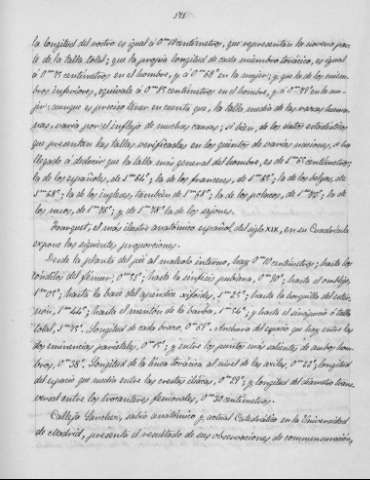 la longitud del rostro es igual á 0m19 centímetros, que representan la novena par-
te de la talla total; que la propia longitud de cada miembro torácico, es igual
á 0m75 centímetros en el hombre, y á 0m68 en la mujer; y que la de los miem-
bros inferiores, equivale á 0m85 centímetros en el hombre, y á 0m81 en la mu-
jer; aunque es preciso tener en cuenta que, la talla media de las razas huma-
nas, varia por el influjo de muchas causas; si bien, de los datos estadísticos
que presentan las tallas verificadas en los quintos de varias naciones, se ha
llegado á deducir que la talla más general del hombre, es de centímetros;
la de los españoles, de 1m64; la de los franceses, de la de los belgas, de
1m68; la de los ingleses, también de 1m68; la de los polacos, de la de
los rusos, de y de 1m78 la de los sajones.
Fourquet, el más ilustre anatómico español del siglo XIX, en su Cuadrícula
expone las siguientes proporciones.
Desde la planta del pié al maléolo interno, hay 0m10 centímetros; hasta los
cóndilos del fémur; hasta la sínfisis pubiana, 0m90; hasta el ombligo,
1m05; hasta la base del apéndice xifoides, 1m25; hasta la horquilla del ester-
nón, 1m44; hasta el mentón de la barba, hasta el sincipucio ó talla
total, Longitud de cada brazo, Anchura del espacio que hay entre las
dos eminencias parietales, 0m15; y entre los puntos más salientes de ambos hom-
bros, 0m38. Longitud de la línea torácica al nivel de las axilas, longitud
del espacio que media entre las crestas ilíacas, y longitud del diámetro trans-
versal entre los trocánteres femorales, 0m30 centímetros.
Calleja Sanchez, sabio anatómico y actual Catedrático en la Universidad
de Madrid, presenta el resultado de sus observaciones de conmensuración,